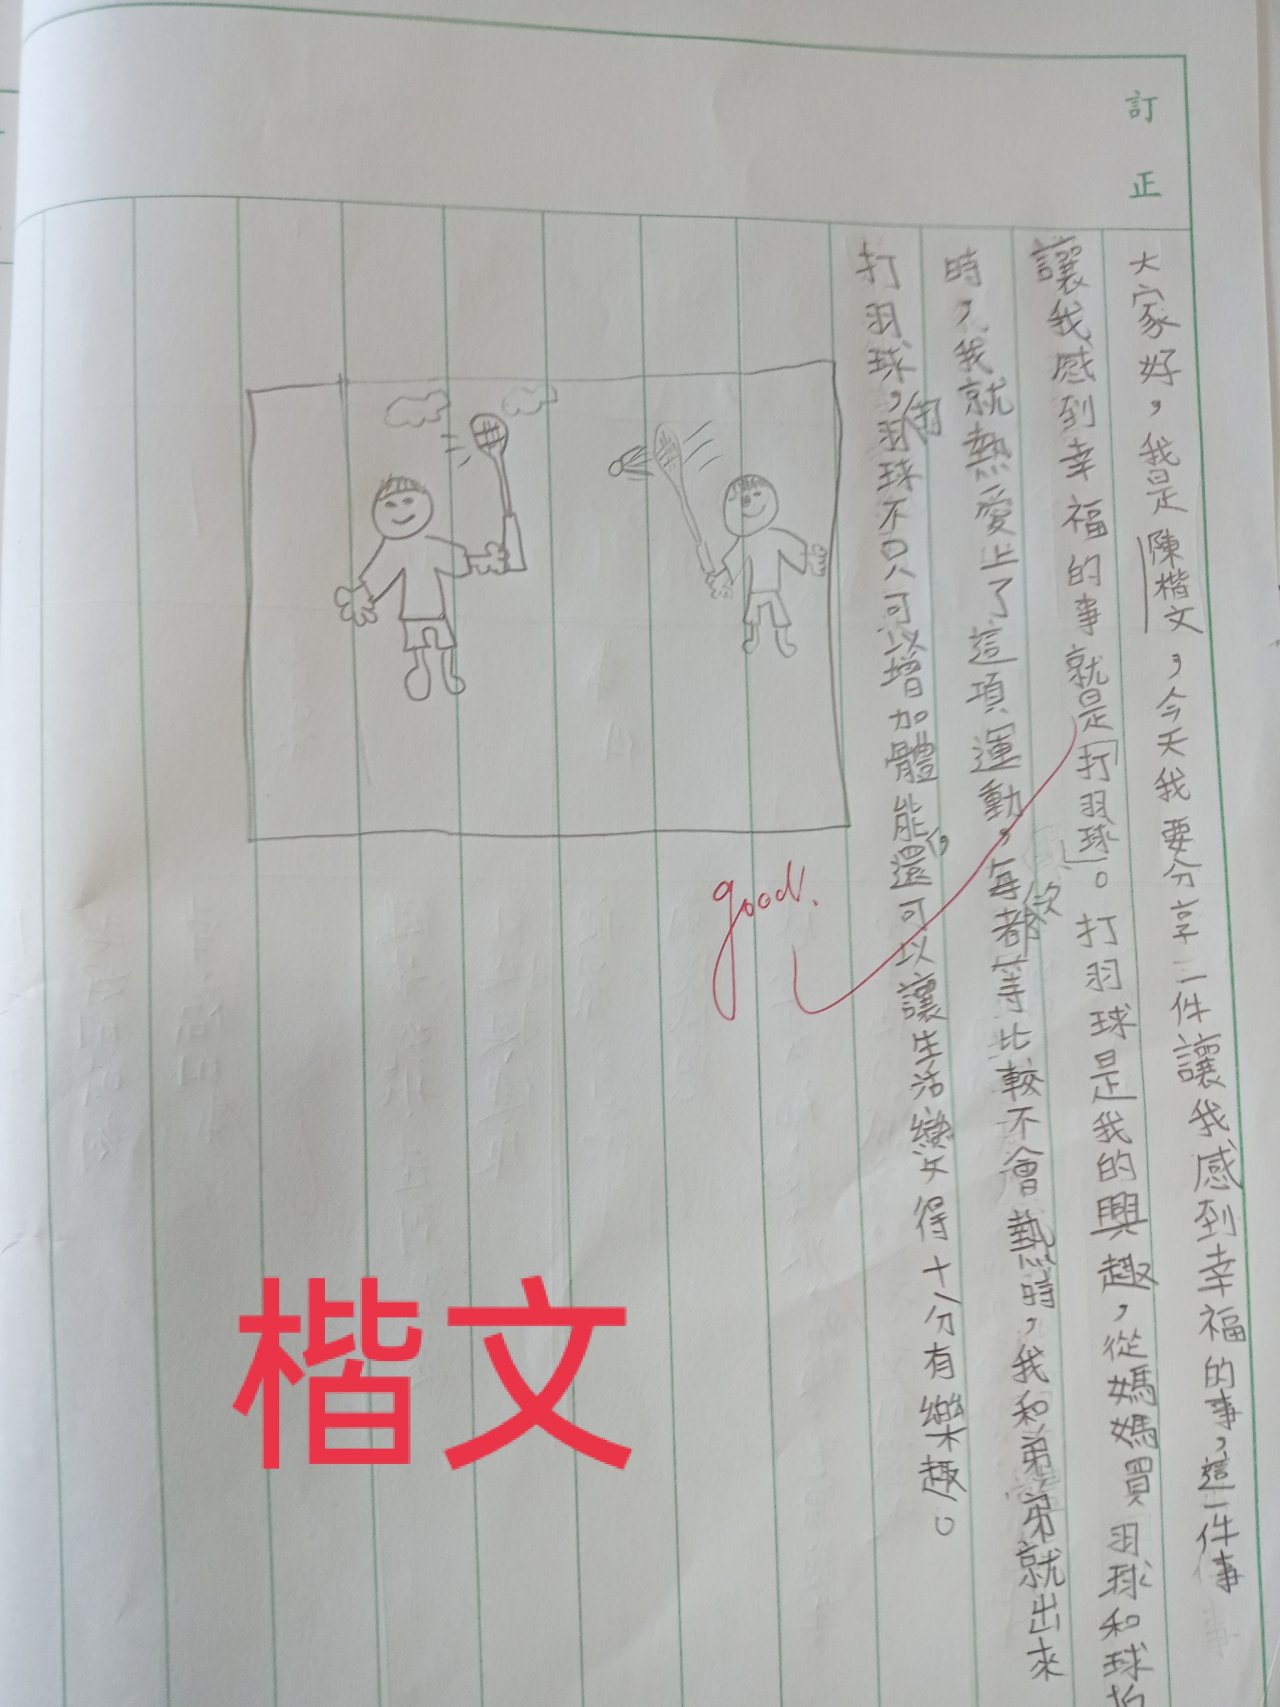 訂正
大家好，我是陳楷文，今天我要分享一件讓我感到幸福的事，這一件事
讓我感到幸福的事就是「打羽球」。打羽球是我的興趣，從媽媽買羽球和球拍
時，我就熱愛上了這項運動，每次都等比較不會熱時，我和弟弟就出來
打羽球，羽球不只可以增加體能，還可以讓生活變得十分有樂趣。
good!
楷文